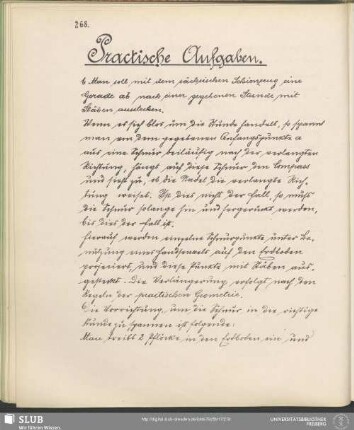 268.
Practische Aufgaben.
1. Man soll mit dem sächsischen Schienzeug eine
Gerade ab nach einer gegebenen Stunde mit
Stäben ausstecken.
Wenn es sich blos um die Stunde handelt, so spannt
man an dem gegebenen Anfangspunkte a
aus eine Schnur beiläufig nach der verlangten
Richtung, hängt auf diese Schnur den Compass
und sieht zu, ob die Nadel die verlangte Rich-
tung weiset. Ist dies nicht der Fall, so muss
die Schnur solange hin und hergerückt werden,
bis dies der Fall ist.
Hierauf werden einzelne Schnurpunkte unter Be-
nützung eines Handsenkels auf den Erdboden
projeciert, und diese Punkte mit Stäben aus-
gesteckt. Die Verlängerung erfolgt nach den
Regeln der practischen Geometrie.
Die Vorrichtung um die Schnur in die richtige
Stunde zu spannen ist folgende:
Man treibt 2 Pflöcke in den Erdboten ein und
SLUB
Wir führen Wissen.
UNIVERSITÄTSBIBLIOTHEK
FREIBERG